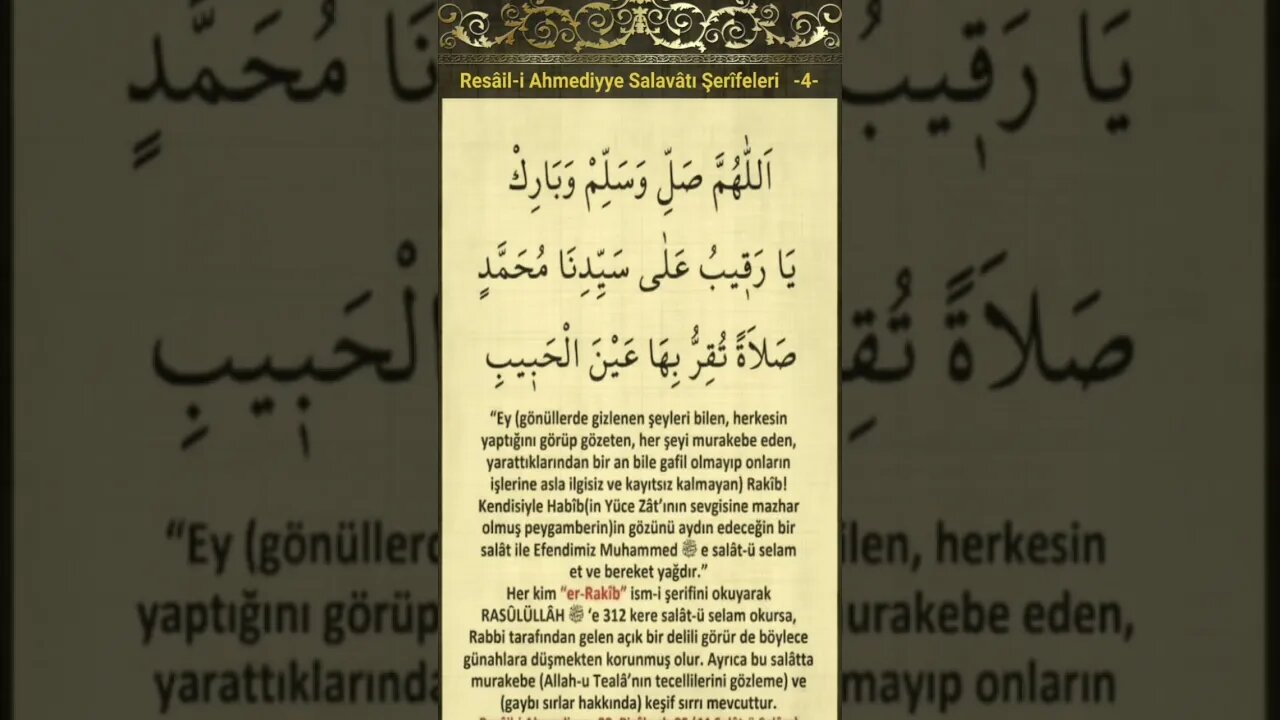 Resâil-i Ahmediyye Salavâtı Şerîfeleri -4-
اَللّٰهُمَّ صَلِّ وَسَلِّمْ وَبَارِكْ
يَا رَقِيبُ عَلٰى سَيِّدِنَا مُحَمَّدٍ
صَلَاةً تُقِرُّ بِهَا عَيْنَ الْحَبِيبِ
“Ey (gönüllerde gizlenen şeyleri bilen, herkesin
yaptığını görüp gözeten, her şeyi murakebe eden,
yarattıklarından bir an bile gafil olmayıp onların
işlerine asla ilgisiz ve kayıtsız kalmayan) Rakîb!
Kendisiyle Habîb(in Yüce Zât’ının sevgisine mazhar
olmuş peygamberin)in gözünü aydın edeceğin bir
salât ile Efendimiz Muhammed ﷺ e salât-ü selam
et ve bereket yağdır.”
Her kim “er-Rakîb” ism-i şerifini okuyarak
RASÛLÜLLÂH ﷺ ‘e 312 kere salât-ü selam okursa,
Rabbi tarafından gelen açık bir delili görür de böylece
günahlara düşmekten korunmuş olur. Ayrıca bu salâtta
murakebe (Allah-u Tealâ’nın tecellilerini gözleme) ve
(gaybı sırlar hakkında) keşif sırrı mevcuttur.